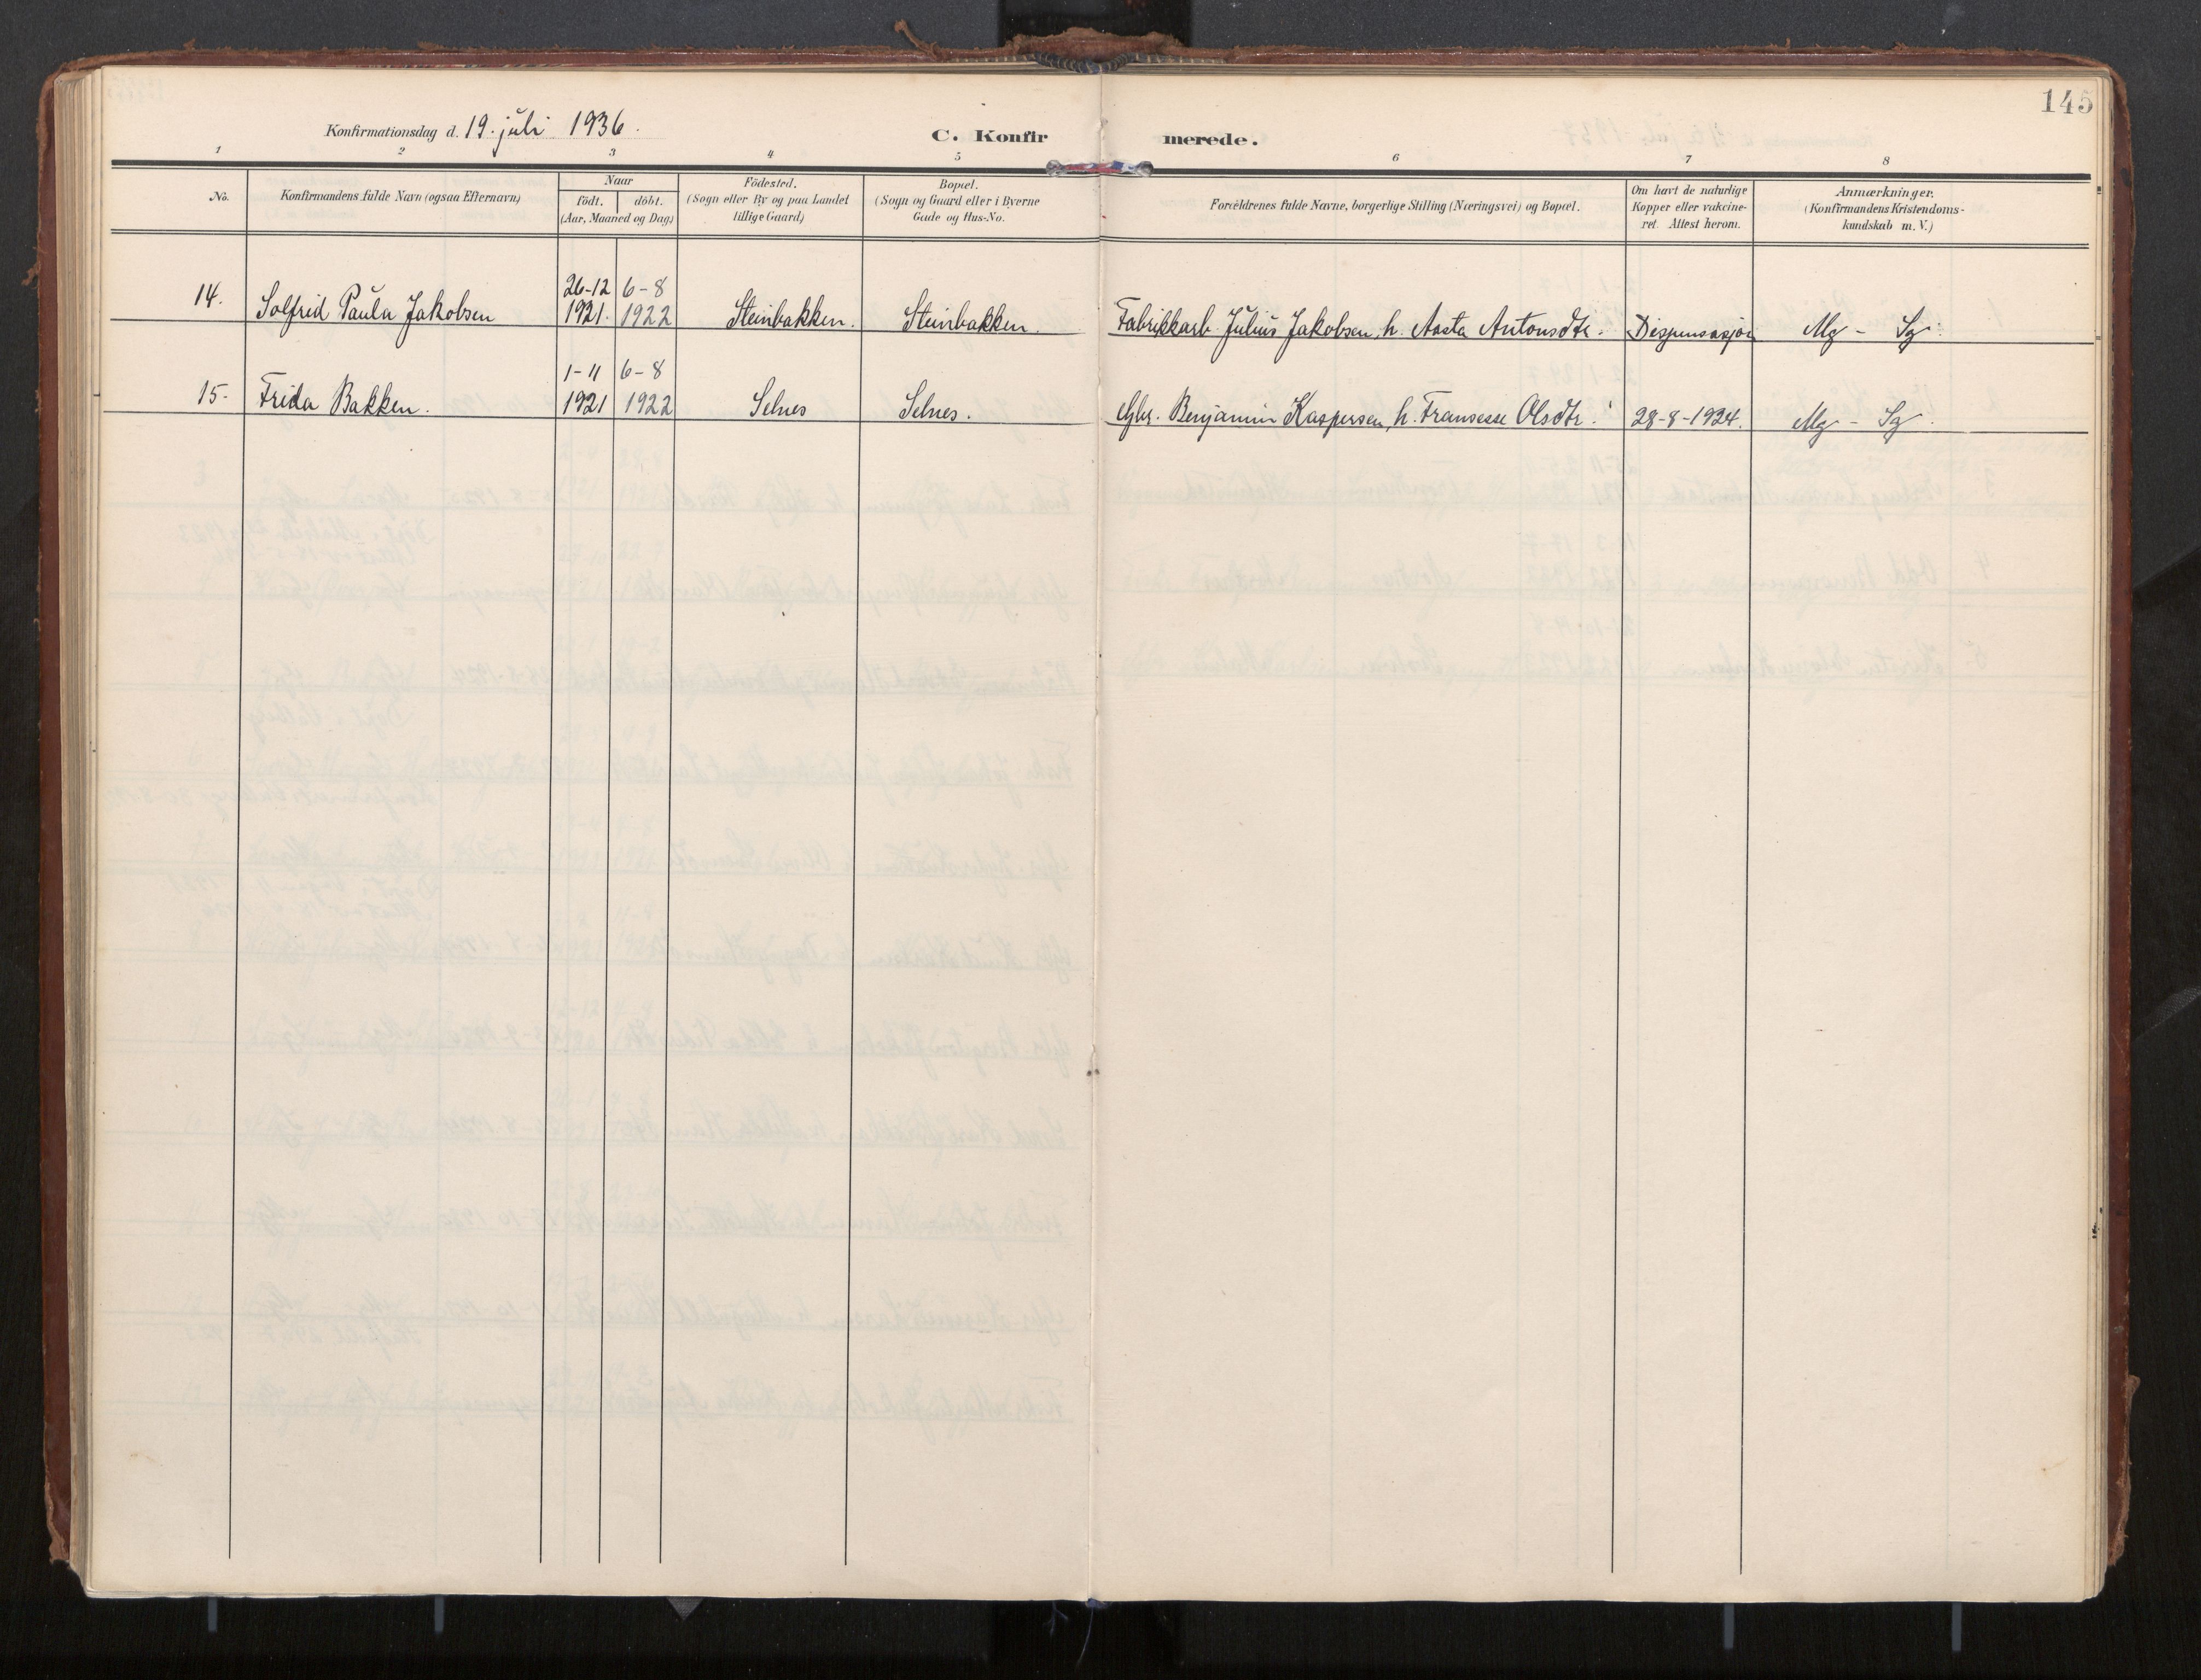 145
Konfirmationsdag d. 19. juli 1936.
C. Konfirmerede.
1 2 3 4 5 6 7 8
No.
Konfirmandens fulde Navn (ogsaa Efternavn)
Naar
født. døbt.
(Aar, Maaned og Dag)
Fødested.
(Sogn eller By og paa Landet
tillige Gaard)
Bopæl.
(Sogn og Gaard eller i Byerne
Gade og Hus-No.
Forældrenes fulde Navne, borgerlige Stilling (Næringsvei) og Bopæl.
Om havt de naturlige
Kopper eller vakcine-
ret. Attest herom.
Anmærkninger.
(Konfirmandens Kristendoms-
kundskab m. V.)
26-12 6-8
14. Solfrid Paula Jakobsen 1921. 1922 Steinbakken. Steinbakken. Fabrikkarb. Julius Jakobsen, h. Aasta Antonsdtr. Dispensasjon Mg - Sg.
1-11 6-8
15. Frida Bakken. 1921 1922 Selnes Selnes. Gbr. Benjamin Kaspersen, h. Fransesse Olsdtr. 28-8-1924. Mg - Sg.